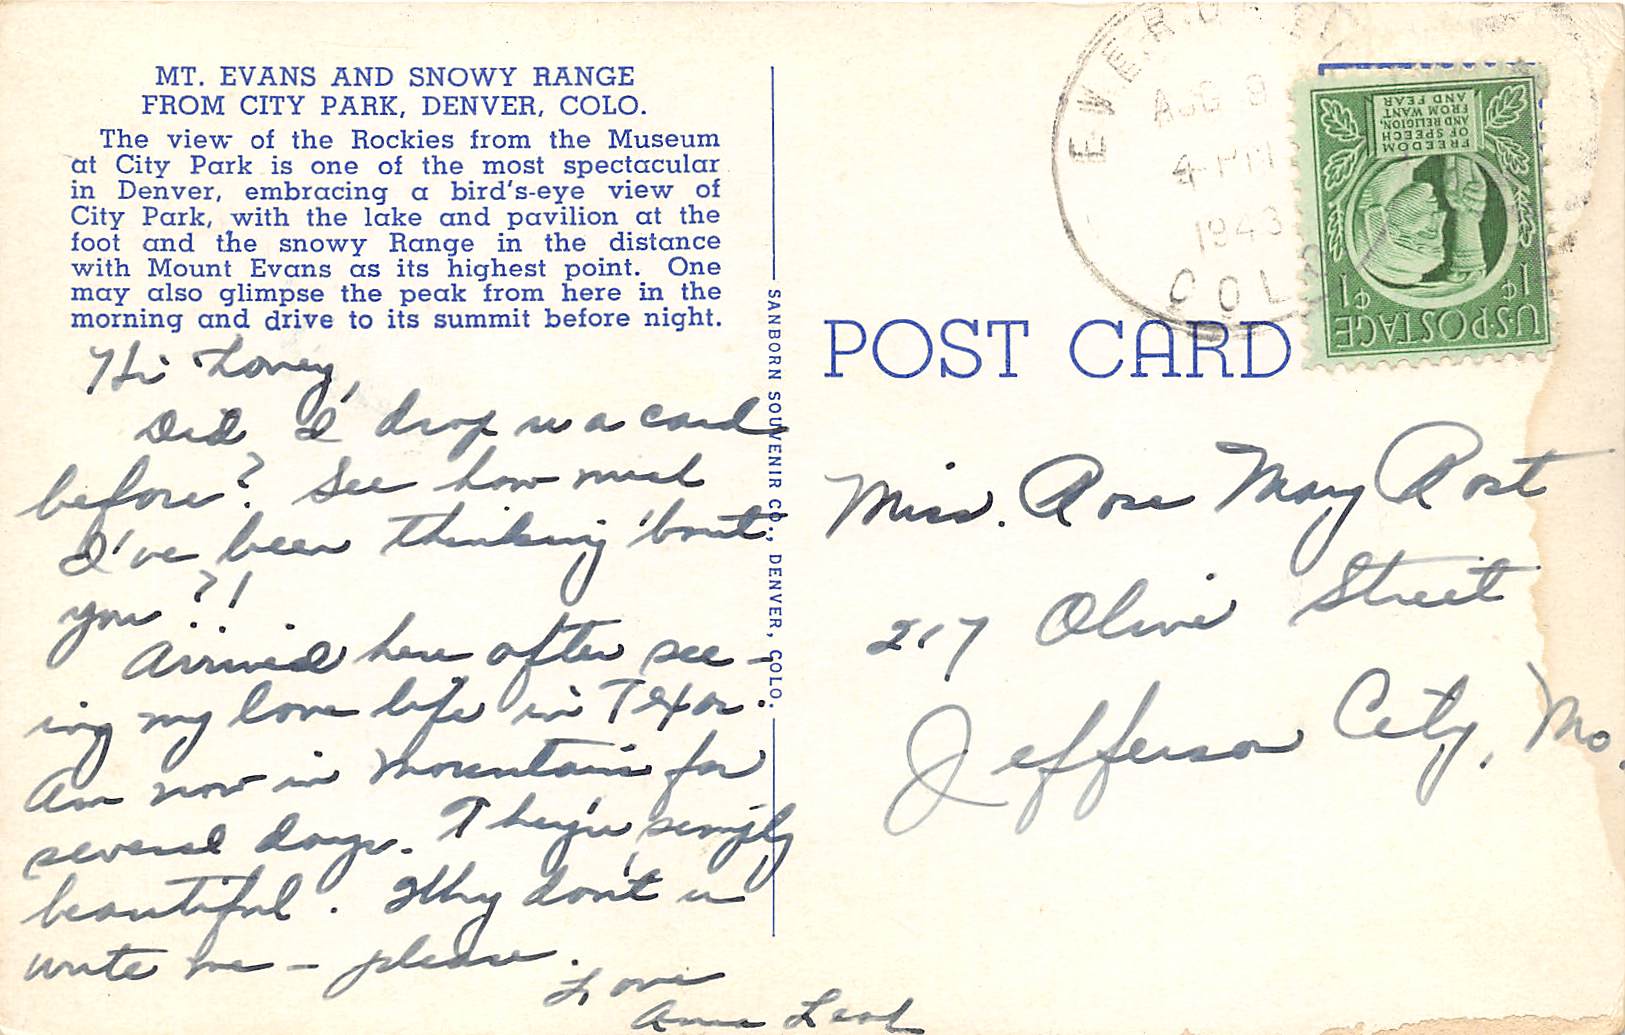 MT. EVANS AND SNOWY RANGE
FROM CITY PARK, DENVER, COLO.
The view of the Rockies from the Museum
at City Park is one of the most spectacular
in Denver, embracing a bird's-eye view of
City Park, with the lake and pavilion at the
foot and the snowy Range in the distance
with Mount Evans as its highest point. One
may also glimpse the peak from here in the
morning and drive to its summit before night.
Hi Loney,
Did I drop u a card
before? See how much
I've been thinking 'bout
you?!
Arrived here after see-
ing my love life in Texas.
Am now in mountains for
several days. They're simply
beautiful. Why don't u
write me - please.
Love
Anna
SANBORN SOUVENIR CO., DENVER, COLO.
POST CARD
AUG 9
4-PM
1943
COLO
FREEDOM
OF SPEECH
AND RELIGION,
FROM WANT
AND FEAR
1¢ 1¢
U.S. POSTAGE
Miss. Rose Mary Rost
217 Olive Street
Jefferson City, Mo.